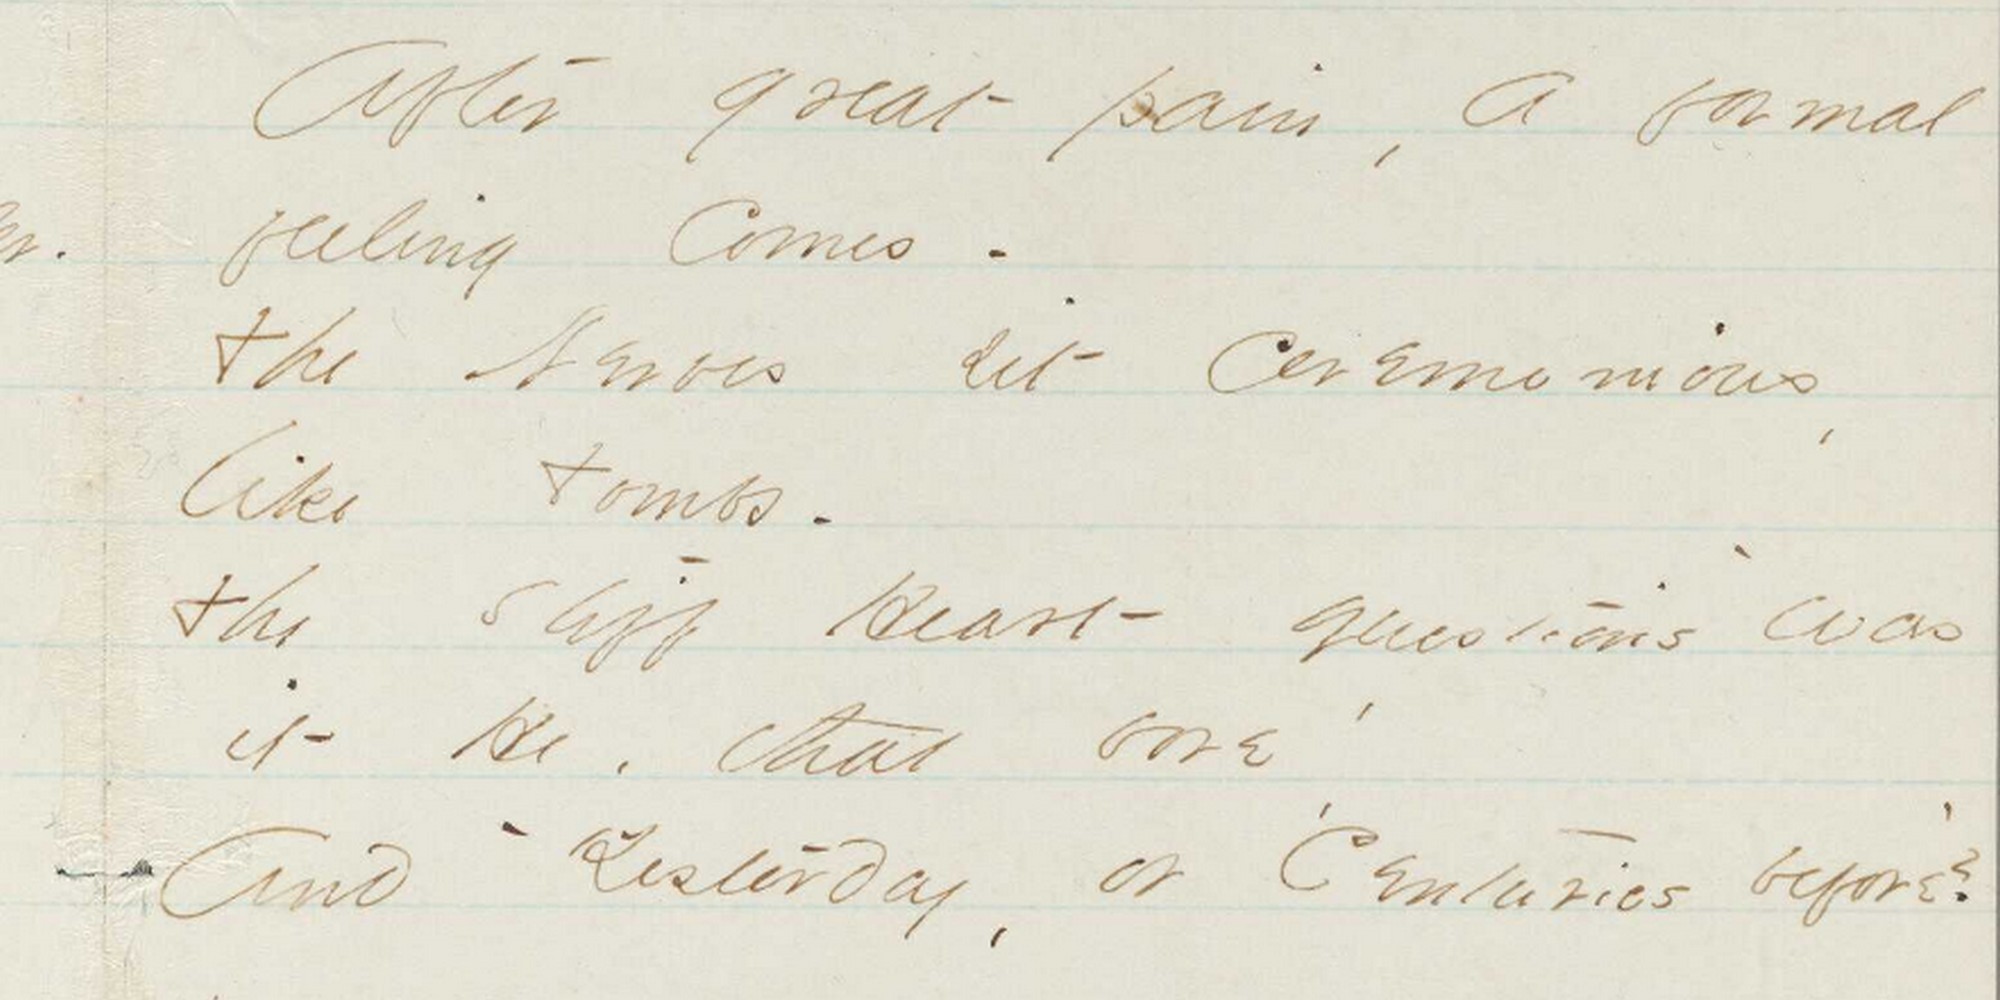 After great pain, a formal
feeling comes -
The Nerves sit Ceremonious,
like Tombs -
The stiff Heart questions 'was
it He, that bore'
And 'Yesterday, or 'Centuries before'?